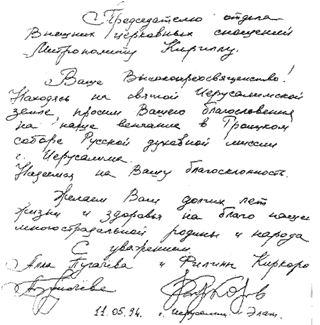 Председателю отдела
Внешних церковных сношений
Митрополиту Кириллу.
Ваше Высокопреосвященство!
Находясь на святой Иерусалимской
земле, просим Вашего благословения
на наше венчание в Троицком
соборе Русской духовной миссии
г. Иерусалима.
Надеемся на Вашу благосклонность.
Желаем Вам долгих лет
жизни и здоровья на благо нашей
многострадальной родины и народа
С уважением
Алла Пугачёва и Филипп Киркоров
11.05.94. г. Иерусалим - Элат.